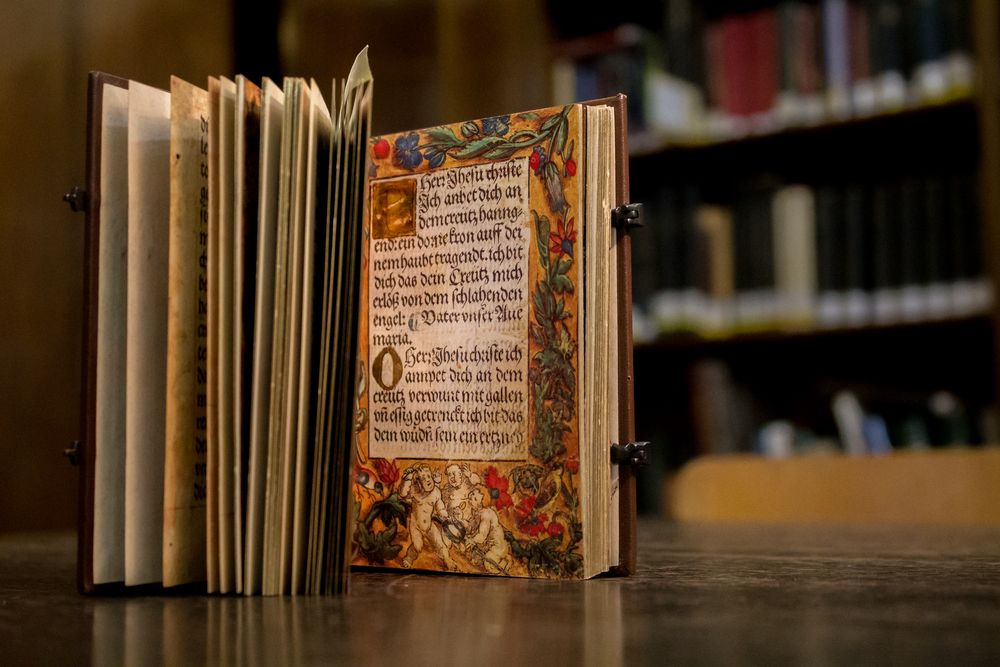 Herr Jhesu christe
Jch anbet dich an
dem creütz hanng-
end: ein dorne kron auff dei
nem haubt tragendt. ich bit
dich das dein Creütz mich
erlöß von dem schlahenden
engel: Vater vnser Aue
maria.
O Herr Jhesu christe ich
annpet dich an dem
creütz verwunt mit gallen
vñ essig getrenckt ich bit das
dein wüdñ sein ein ertzneÿ